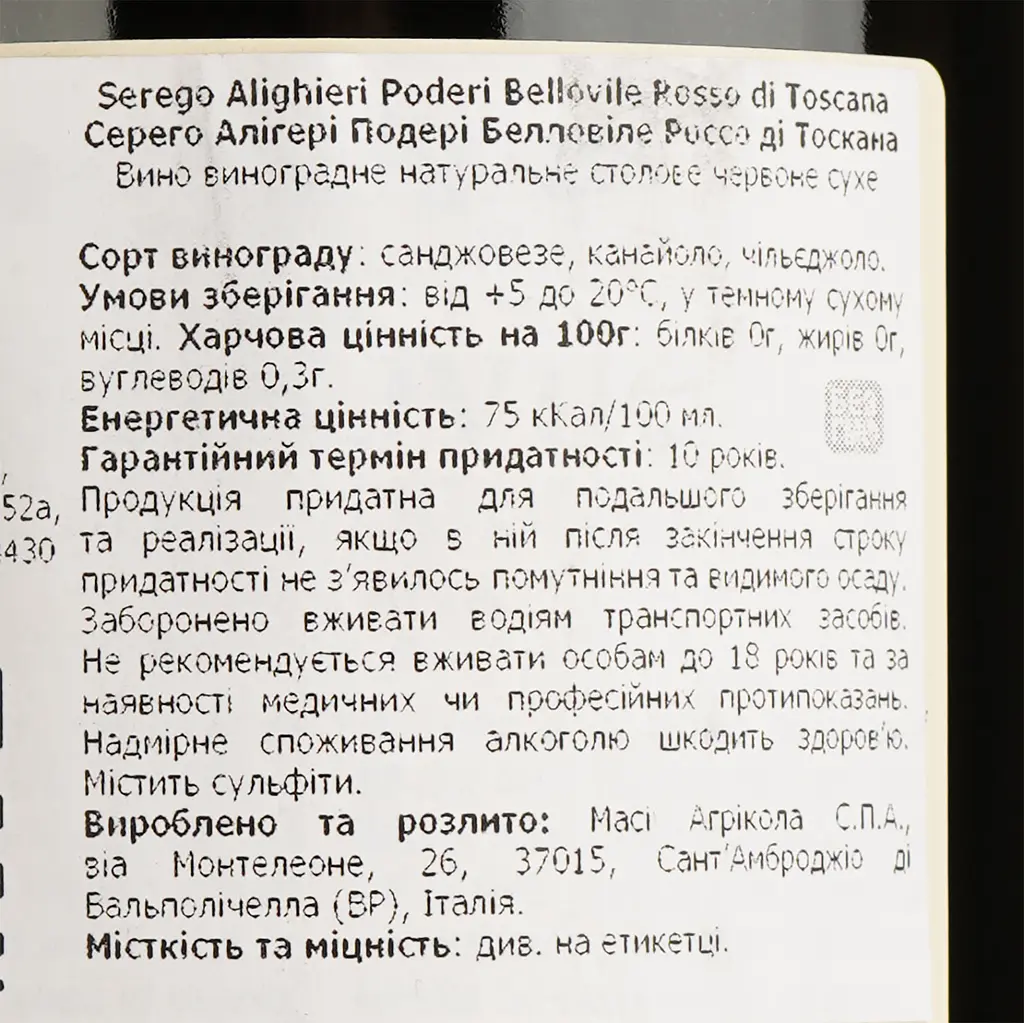 Serego Alighieri Poderi Bellovile Rosso di Toscana
Серего Алігері Подері Белловіле Россо ді Тоскана
Вино виноградне натуральне столове червоне сухе
Сорт винограду: санджовезе, канайоло, чільєджоло.
Умови зберігання: від +5 до 20°С, у темному сухому
місці. Харчова цінність на 100г: білків 0г, жирів 0г,
вуглеводів 0,3г.
Енергетична цінність: 75 кКал/100 мл.
Гарантійний термін придатності: 10 років.
Продукція придатна для подальшого зберігання
та реалізації, якщо в ній після закінчення строку
придатності не з'явилось помутніння та видимого осаду.
Заборонено вживати водіям транспортних засобів.
Не рекомендується вживати особам до 18 років та за
наявності медичних чи професійних протипоказань.
Надмірне споживання алкоголю шкодить здоров'ю.
Містить сульфіти.
Вироблено та розлито: Масі Агрікола С.П.А.,
віа Монтелеоне, 26, 37015, Сант'Амброджіо ді
Вальполічелла (ВР), Італія.
Місткість та міцність: див. на етикетці.
52а,
430